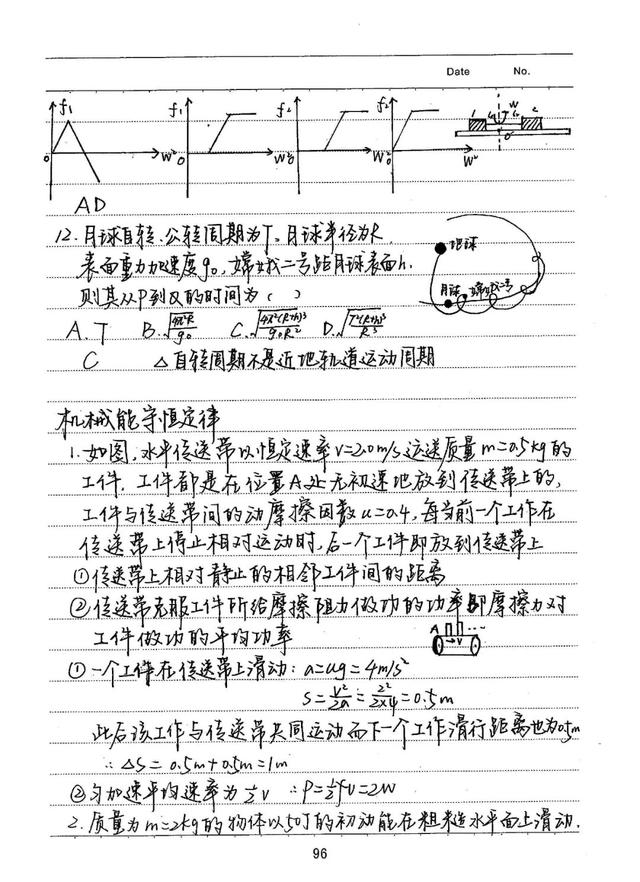 Date No.
f₁ f₁ f₂ f₂ 1 W 2
0 W² 0 W² 0 W² 0 W² O'
AD
12.月球自转、公转周期为T。月球半径为R.
表面重力加速度g₀。嫦娥二号距月球表面h.
则其从P到Q的时间为( )
地球
月球 嫦娥二号
A.T B.√(4π²R/g₀) C.√(4π²(R+h)³/g₀R²) D.√(T²(R+h)³/R³)
C △自转周期不是近地轨道运动周期
机械能守恒定律
1.如图,水平传送带以恒定速率v=2.0m/s运送质量m=0.5kg的
工件.工件都是在位置A处无初速地放到传送带上的,
工件与传送带间的动摩擦因数u=0.4,每当前一个工件在
传送带上停止相对运动时,后一个工件即放到传送带上
①传送带上相对静止的相邻工件间的距离
②传送带克服工件所给摩擦阻力做功的功率即摩擦力对
工件做功的平均功率
A ... v
①一个工件在传送带上滑动:a=ug=4m/s²
S=v²/2a=2²/2×4=0.5m
此后该工作与传送带共同运动而下一个工作滑行距离也为0.5m
∴ΔS=0.5m+0.5m=1m
②匀加速平均速率为½v ∴P=½fv=2W
2.质量为m=2kg的物体以50J的初动能在粗糙水平面上滑动.
96